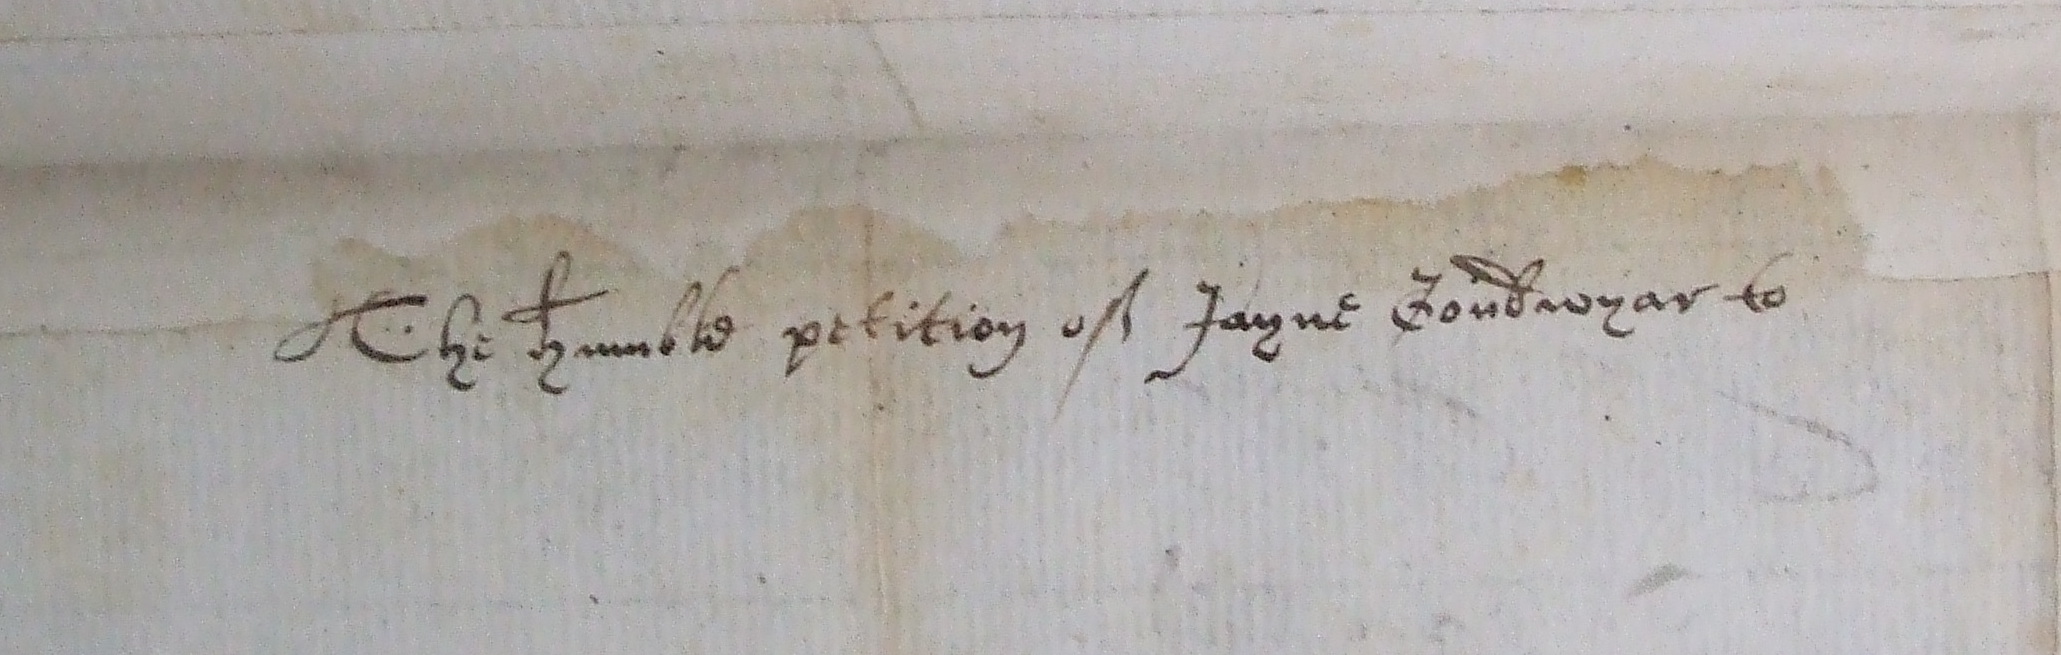 The humble petition of Jayne to